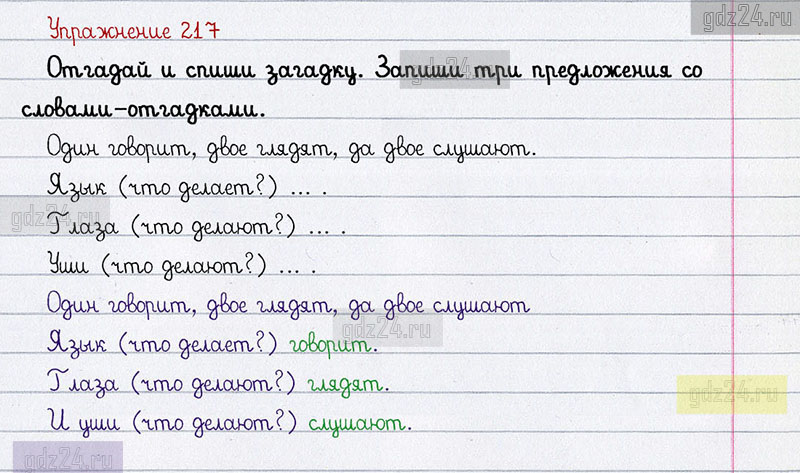 gdz24.ru
Упражнение 217
Отгадай и спиши загадку. Запиши три предложения со
gdz24.ru
словами-отгадками.
Один говорит, двое глядят, да двое слушают.
Язык (что делает?) ... .
gdz24.ru
Глаза (что делают?) ... .
Уши (что делают?) ... .
Один говорит, двое глядят, да двое слушают
gdz24.ru
Язык (что делает?) говорит.
Глаза (что делают?) глядят.
gdz24.ru
И уши (что делают?) слушают.
gdz24.ru